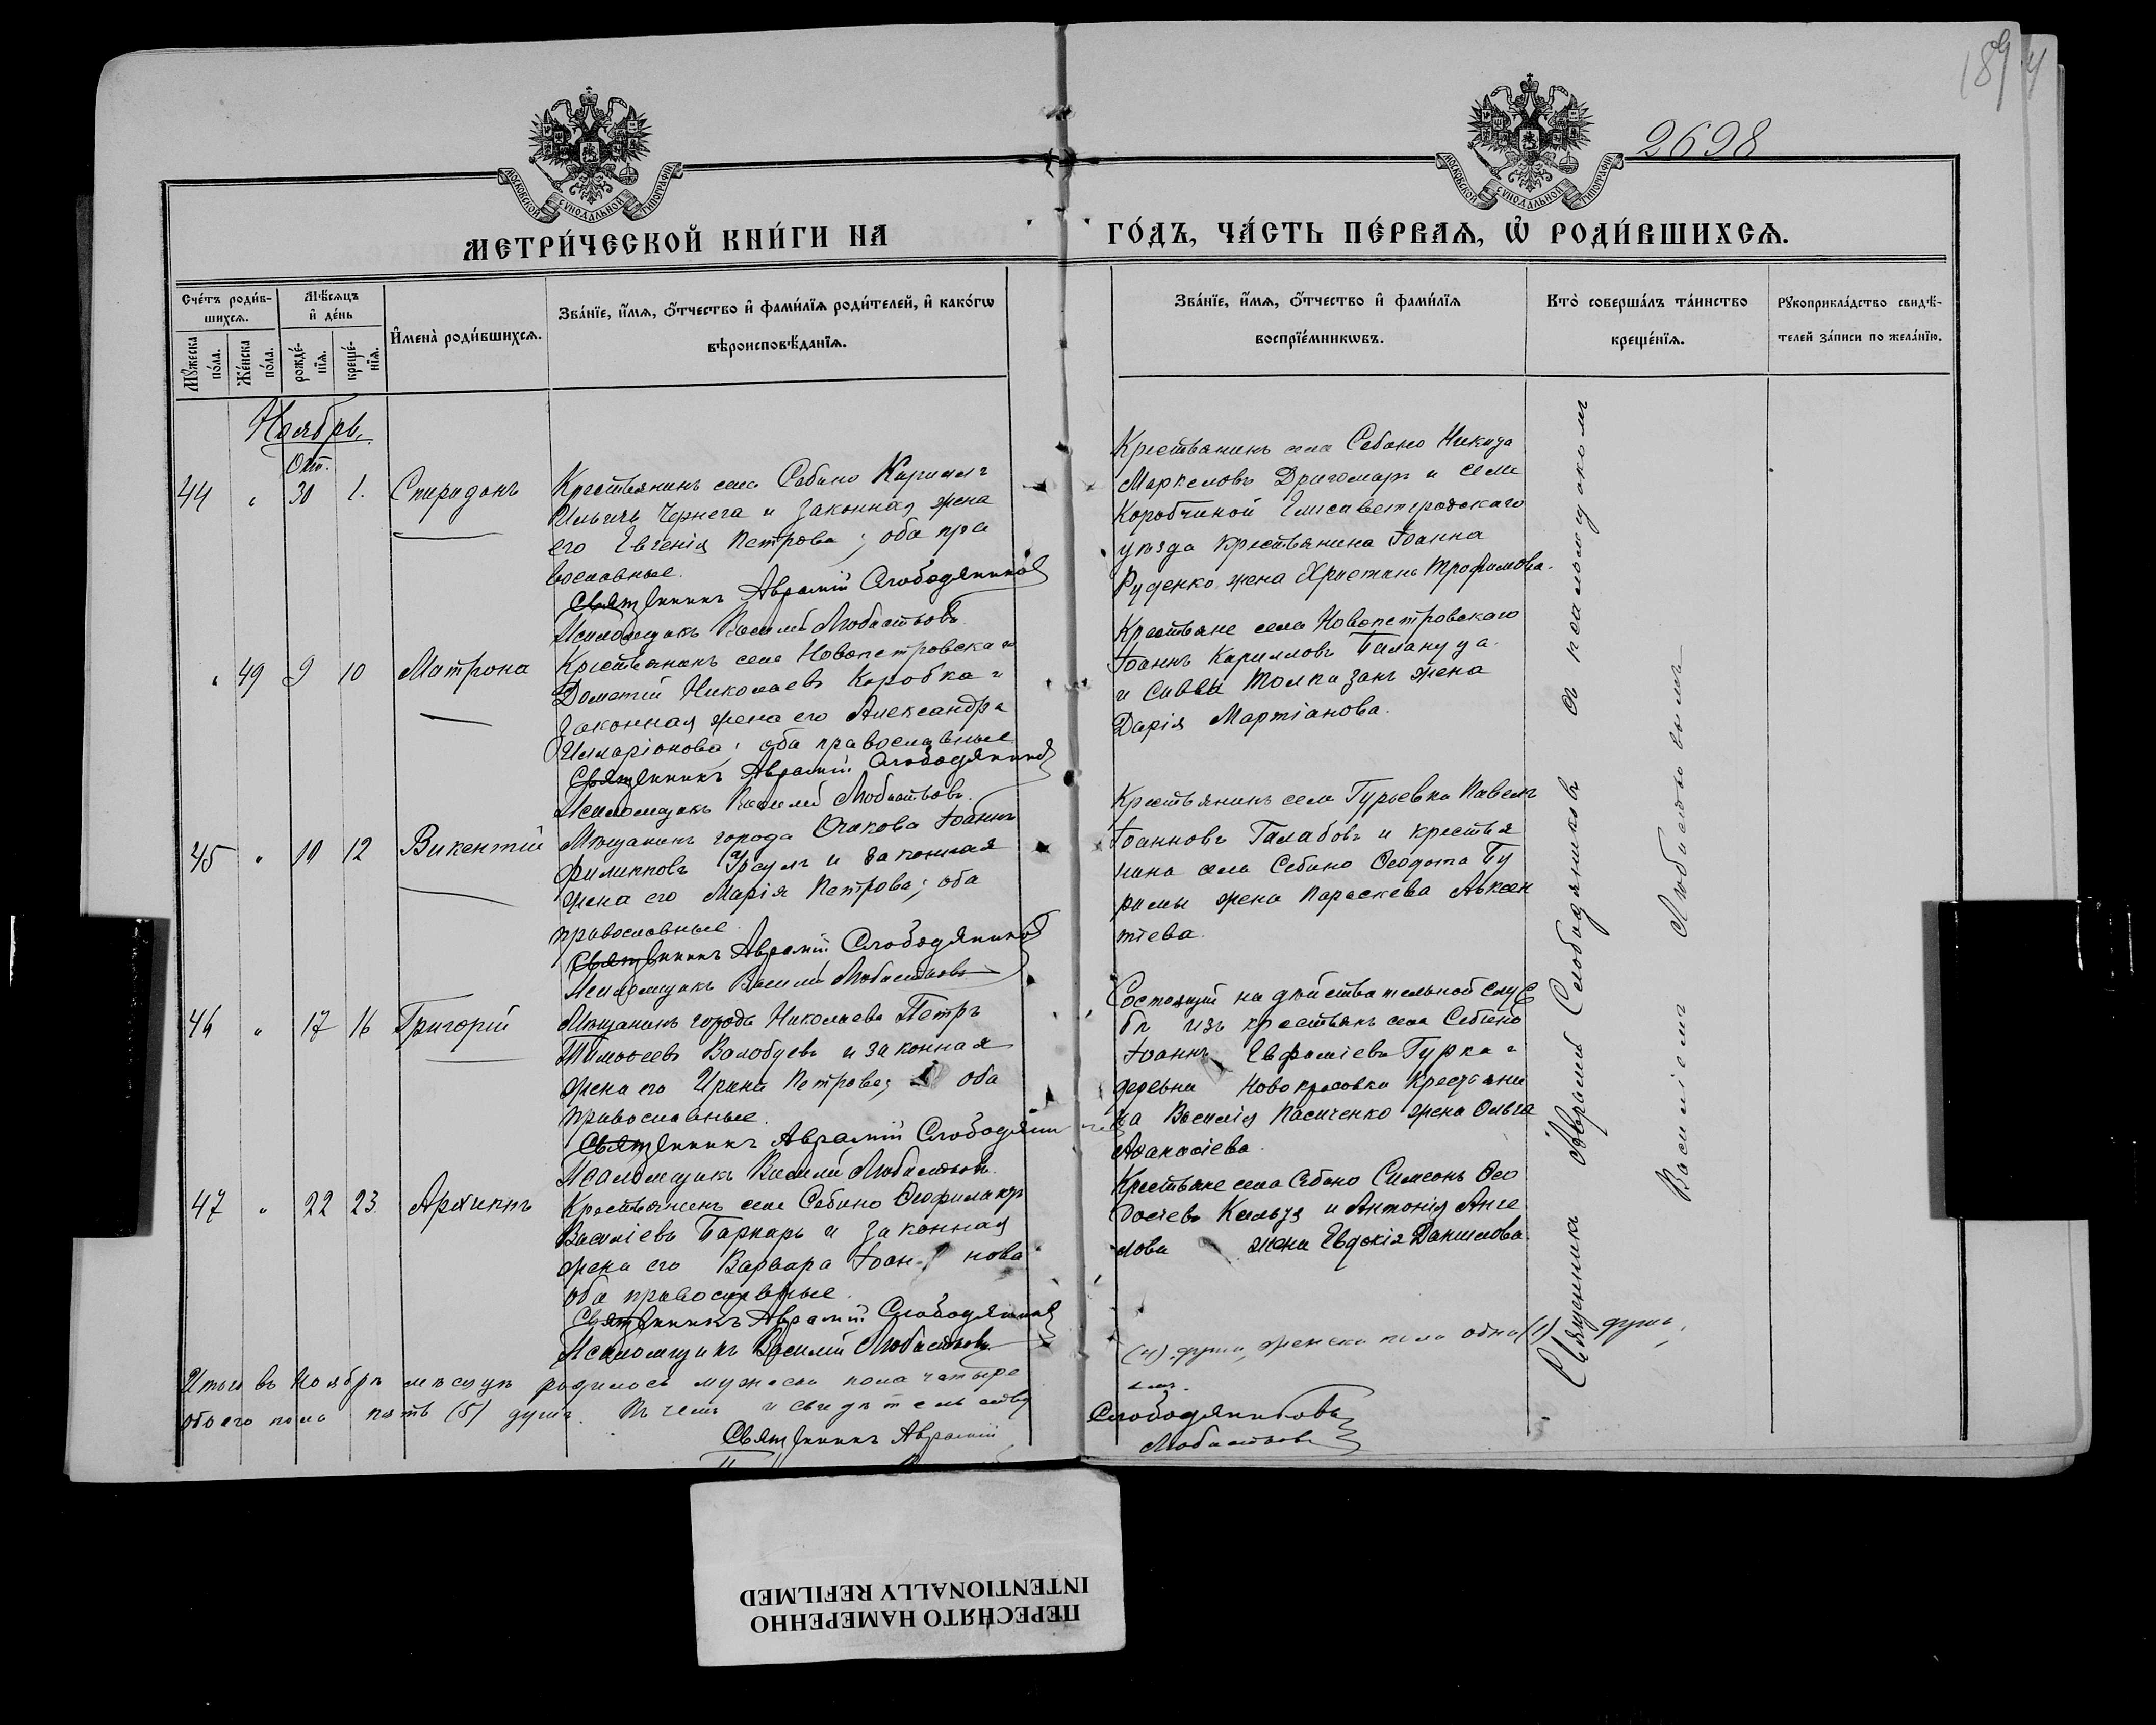 189 4
2698
МОСКОВСКОЙ СѴНОДАЛЬНОЙ ТИПОГРАФІИ
МОСКОВСКОЙ СѴНОДАЛЬНОЙ ТИПОГРАФІИ
МЕТРИ́ЧЕСКОЙ КНИ́ГИ НА
ГО́ДЪ, ЧА́СТЬ ПЕ́РВАѦ, Ѡ҆ РОДИ́ВШИХСѦ.
Сче́тъ роди́в-
шихсѧ.
Мѹ́жеска по́ла.
Же́нска по́ла.
Мѣ́сѧцъ
и҆ де́нь
рожде́-
нїѧ.
креще́-
нїѧ.
И҆мена̀ роди́вшихсѧ.
Зва́нїе, и҆́мѧ, ѻ҆́тчество и҆ фами́лїѧ роди́телей, и҆ како́гѡ
вѣроисповѣ́данїѧ.
Зва́нїе, и҆́мѧ, ѻ҆́тчество и҆ фами́лїѧ
воспрїе́мникѡвъ.
Кто̀ соверша́лъ та́инство
креще́нїѧ.
Рѹкоприкла́дство свидѣ́-
телей за́писи по жела́нїю.
Ноябрь.
Окт.
44 " 30 1. Спиридонъ
Крестьянинъ села Себино Кириллъ
Ильичъ Чернега и законная жена
его Евгенія Петрова; оба пра
вославные.
Священникъ Аврамій Слободяников
Псаломщикъ Василій Любистовъ
Крестьянинъ села Себино Никита
Маркеловъ Дригомаръ и села
Коробчиной Елисаветградскаго
уѣзда крестьянина Іоанна
Руденко жена Христина Трофимова.
" 49 9 10 Матрона
Крестьянинъ села Новопетровскаго
Дометій Николаевъ Коробка и
законная жена его Александра
Илларіонова; оба православные
Священникъ Аврамій Слободяников
Псаломщикъ Василій Любистовъ.
Крестьяне села Новопетровскаго
Іоаннъ Кирилловъ Балануца
и Саввы Толпизанъ жена
Дарія Мартіанова.
45 " 10 12 Викентій
Мѣщанинъ города Очакова Іоаннъ
Филипповъ Урсулъ и законная
жена его Марія Петрова; оба
православные
Священникъ Аврамій Слободяников
Псаломщикъ Василій Любистовъ
Крестьянинъ села Гурьевка Павелъ
Іоанновъ Галабовъ и крестья
нина села Себино Ѳеодота Бу
рилы жена Параскева Авксен
тіева.
46 " 17 16 Григорій
Мѣщанинъ города Николаева Петръ
Тимоѳеевъ Волобуевъ и законная
жена его Ирина Петрова; оба
православные.
Священникъ Аврамій Слободяников
Псаломщикъ Василій Любистовъ.
Состоящій на дѣйствительной служ
бѣ изъ крестьянъ села Себино
Іоаннъ Евфиміевъ Гурка и
деревни Новокрасовки крестьяни
на Василія Пасиченко жена Ольга
Аѳанасіева.
47 " 22 23. Архиппъ
Крестьянинъ села Себино Ѳеофилактъ
Василіевъ Барнаръ и законная
жена его Варвара Іоан- нова
оба православные.
Священникъ Аврамій Слободяников
Псаломщикъ Василій Любистовъ
Крестьяне села Себино Симеонъ Ѳео
досіевъ Кельзя и Антонія Анге
лова жена Евдокія Данилова.
Священника Аврамій Слободяниковъ съ псаломщикомъ
Василіемъ Любистовымъ
Итого въ Ноябрѣ мѣсяцѣ родилось мужеска пола четыре
(4) души, женска пола одна (1) душа,
обоего пола пять (5) душъ. Въ чемъ и свидѣтельству
емъ.
Священникъ Аврамій
Слободяниковъ
Любистовъ
ПЕРЕСНЯТО НАМЕРЕННО
INTENTIONALLY REFILMED